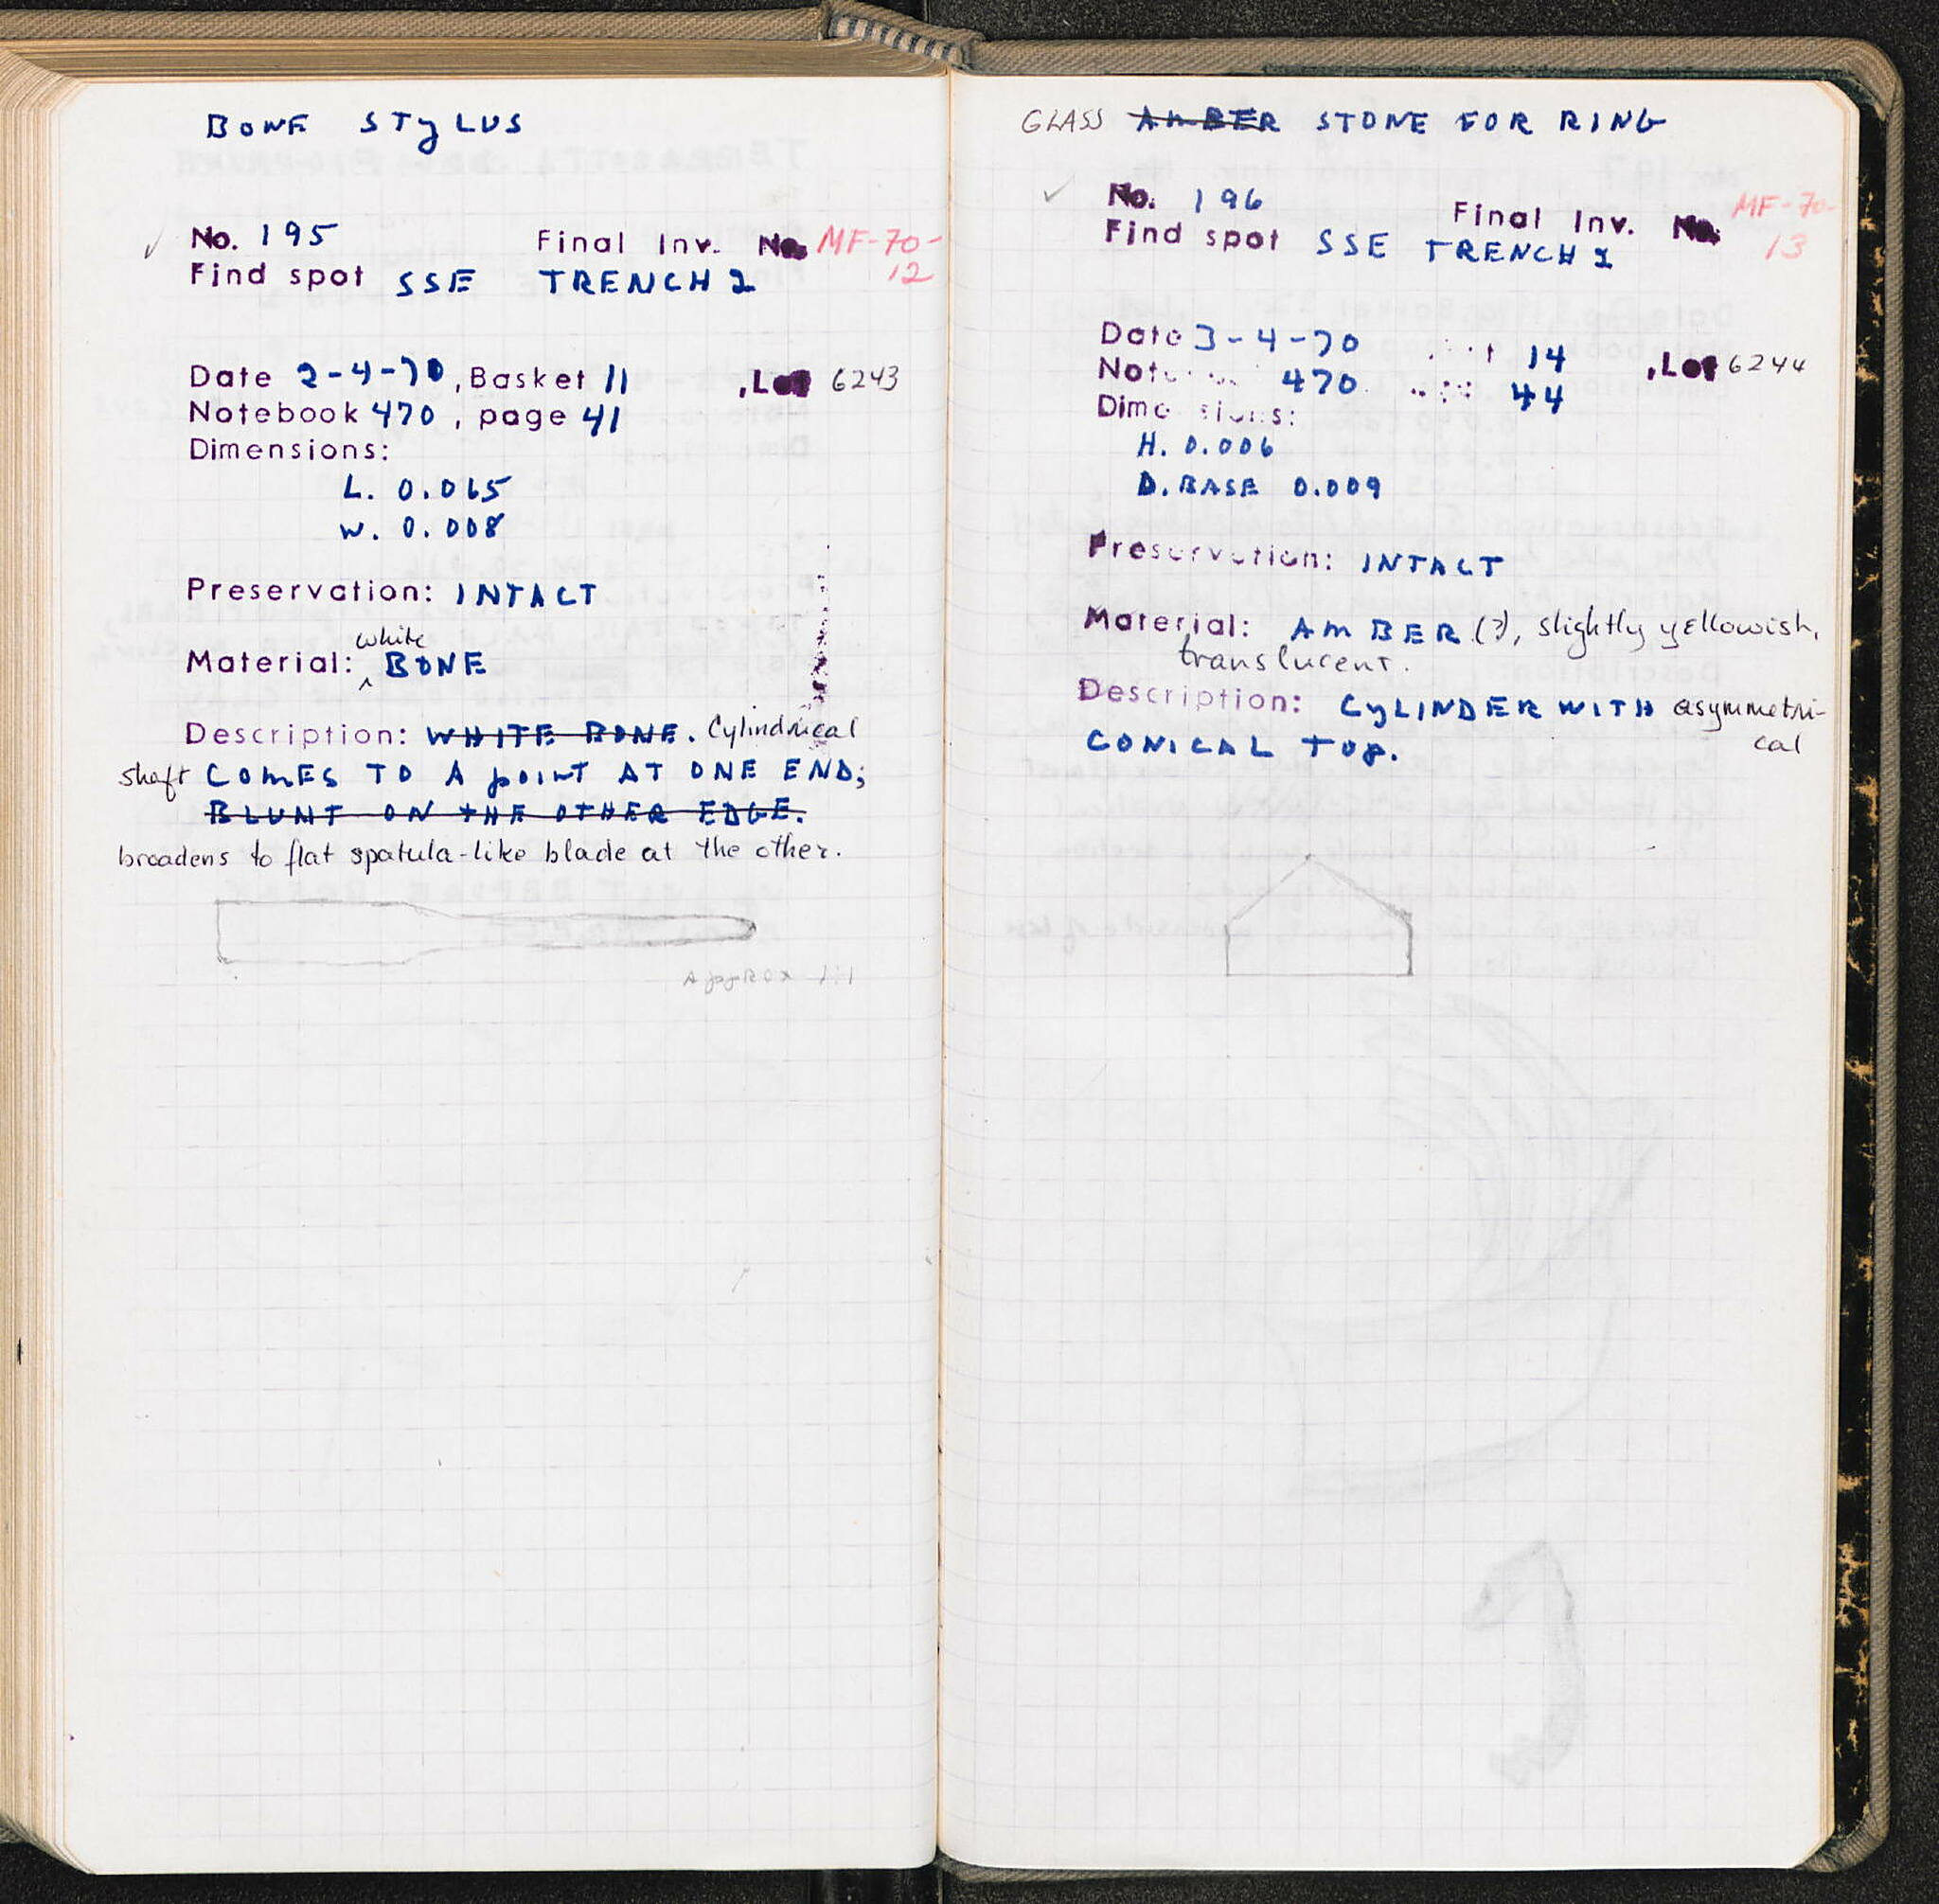 BONE STYLUS
No. 195 Final Inv. No. MF-70-
12
Find spot SSE TRENCH 2
Date 2-4-70, Basket 11 , Lot 6243
Notebook 470, page 41
Dimensions:
L. 0.065
W. 0.008
Preservation: INTACT
white
Material: BONE
Description: WHITE BONE. Cylindrical
shaft COMES TO A POINT AT ONE END;
BLUNT ON THE OTHER EDGE.
broadens to flat spatula-like blade at the other.
APPROX 1:1
GLASS AMBER STONE FOR RING
No. 196 Final Inv. No. MF-70-
13
Find spot SSE TRENCH
Date 3-4-70 14 , Lot 6244
Not 470 44
Dimensions:
H. 0.006
D. BASE 0.009
Preservation: INTACT
Material: AMBER (?), slightly yellowish,
translucent.
Description: CYLINDER WITH asymmetri-
cal
CONICAL TOP.